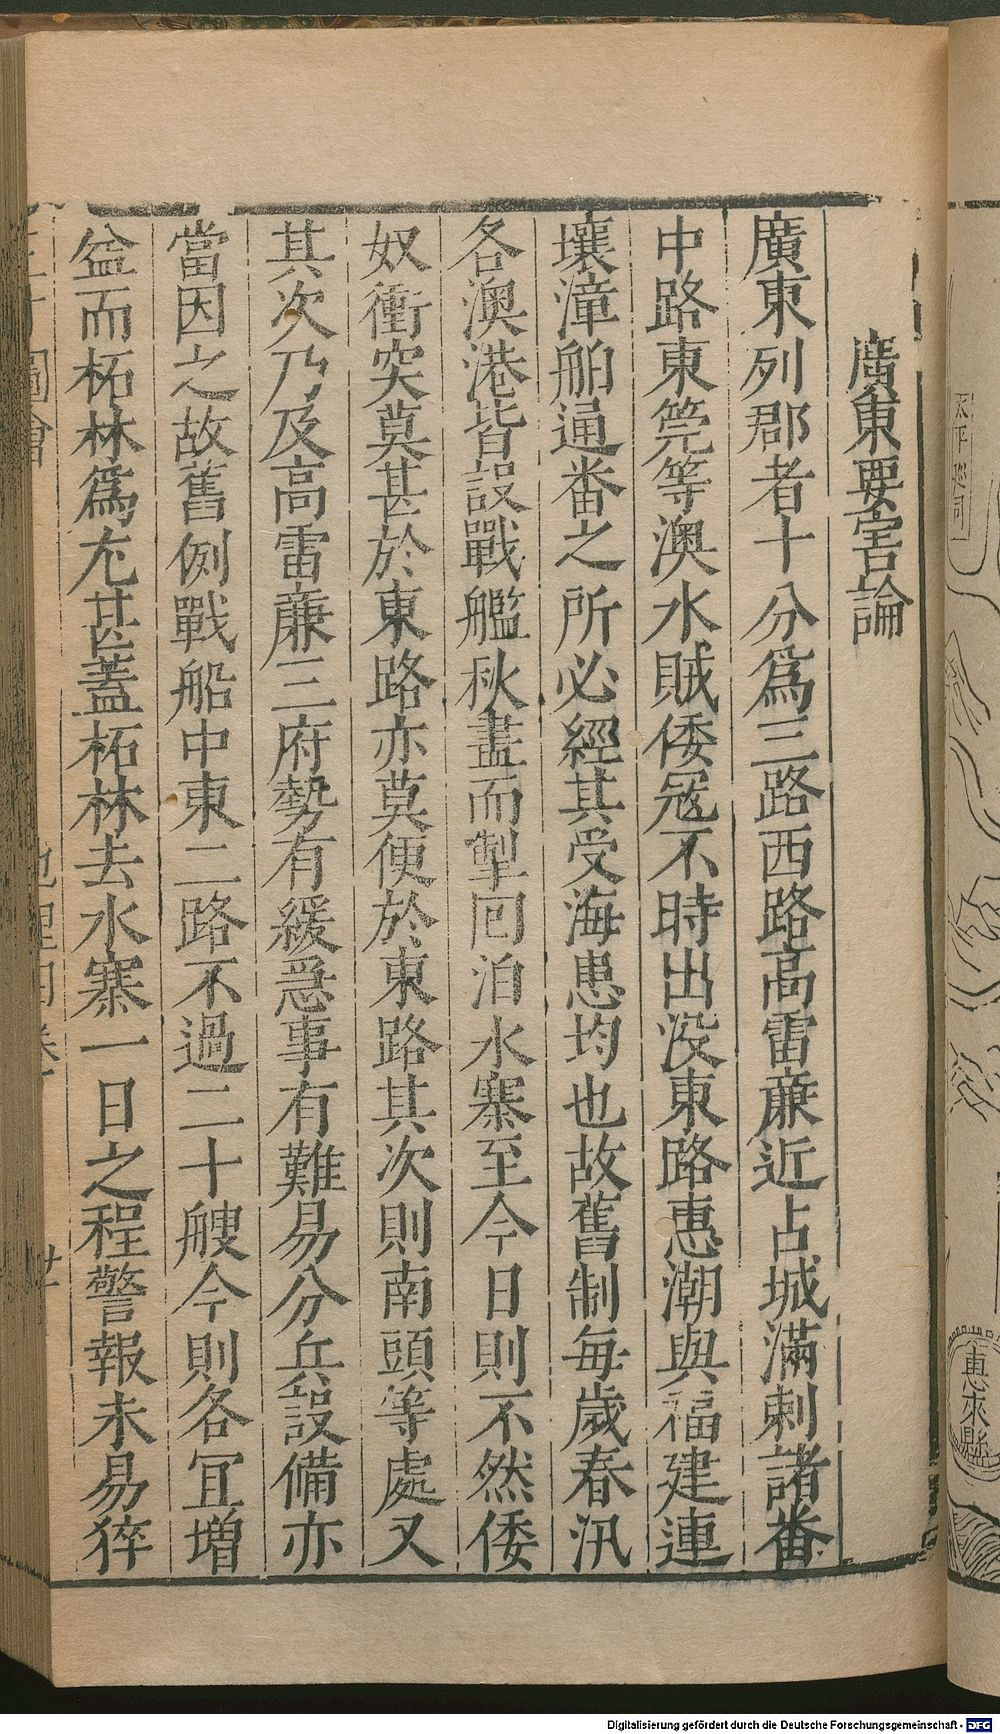 廣東要害論
廣東列郡者十分爲三路西路高雷亷近占城滿剌諸番
中路東筦等澳水賊倭冦不時出没東路惠潮與福建連
壤漳舶通番之所必經其受海患均也故舊制每歲春汛
各澳港皆設戰艦秋盡而掣囘泊水寨至今日則不然倭
奴衝突莫甚於東路亦莫便於東路其次則南頭等處又
其次乃及高雷亷三府勢有緩急事有難易分兵設備亦
當因之故舊例戰船中東二路不過二十艘今則各冝增
益而柘林爲尤甚蓋柘林去水寨一日之程警報未易猝
圖會
太平巡司
惠來縣
Digitalisierung gefördert durch die Deutsche Forschungsgemeinschaft - DFG